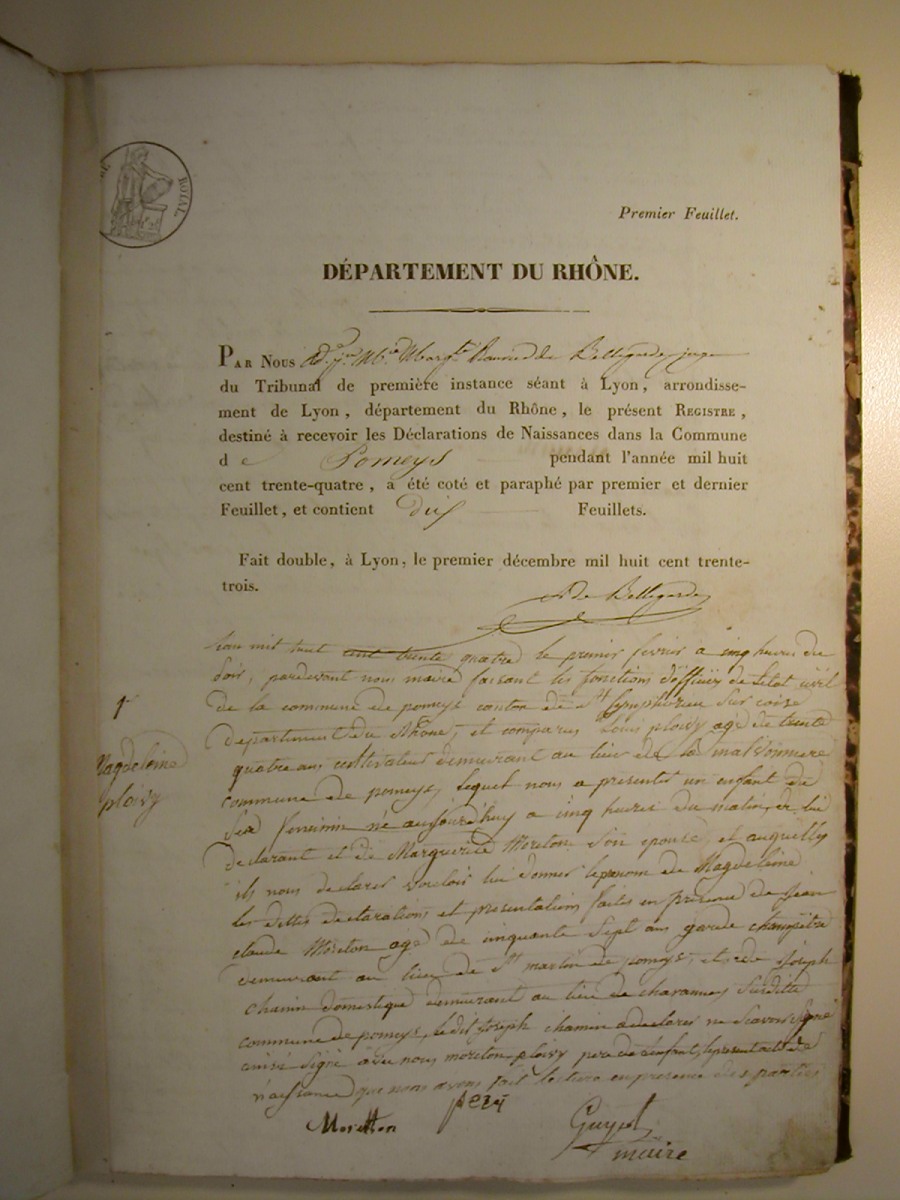 ROYAL.
Premier Feuillet.
DÉPARTEMENT DU RHÔNE.
PAR NOUS de Bellegarde juge
du Tribunal de première instance séant à Lyon, arrondisse-
ment de Lyon, département du Rhône, le présent REGISTRE,
destiné à recevoir les Déclarations de Naissances dans la Commune
d e Pomeys pendant l'année mil huit
cent trente-quatre, a été coté et paraphé par premier et dernier
Feuillet, et contient dix Feuillets.
Fait double, à Lyon, le premier décembre mil huit cent trente-
trois.
De Bellegarde
Lan mil huit cent trente quatre le premier fevrier a cinq heures du
soir, pardevant nous maire faisant les fonctions d'officier de letat civil
de la commune de pomeys canton de St Symphorien sur coise
departement du Rhône, est comparu Louis ploivy agé de trente
quatre ans cultivateur demeurant au lieu de la
commune de pomeys, lequel nous a presenté un enfant du
sex feminin né aujourd'huy a cinq heures du matin, de lui
declarant et de Marguerite Moreton son epouse, et auquelly
ils nous declarer vouloir lui donner leprenom de Magdeleine
les dittes declarations et presentations faites en presence de Jean
claude Moreton agé de cinquante sept ans garde champêtre
demeurant au lieu de St martin de pomeys, et de Joseph
chamin domestique demeurant au lieu de charannes surditte
commune de pomeys, le dit Joseph chamin a declarer ne scavoir signé
signé avec nous moreton ploivy pere de lenfant, lepresent acte de
naissance que nous avons fait lecture en presence des parties
1r
Magdeleine
ploivy
Moretton
Guyot
maire